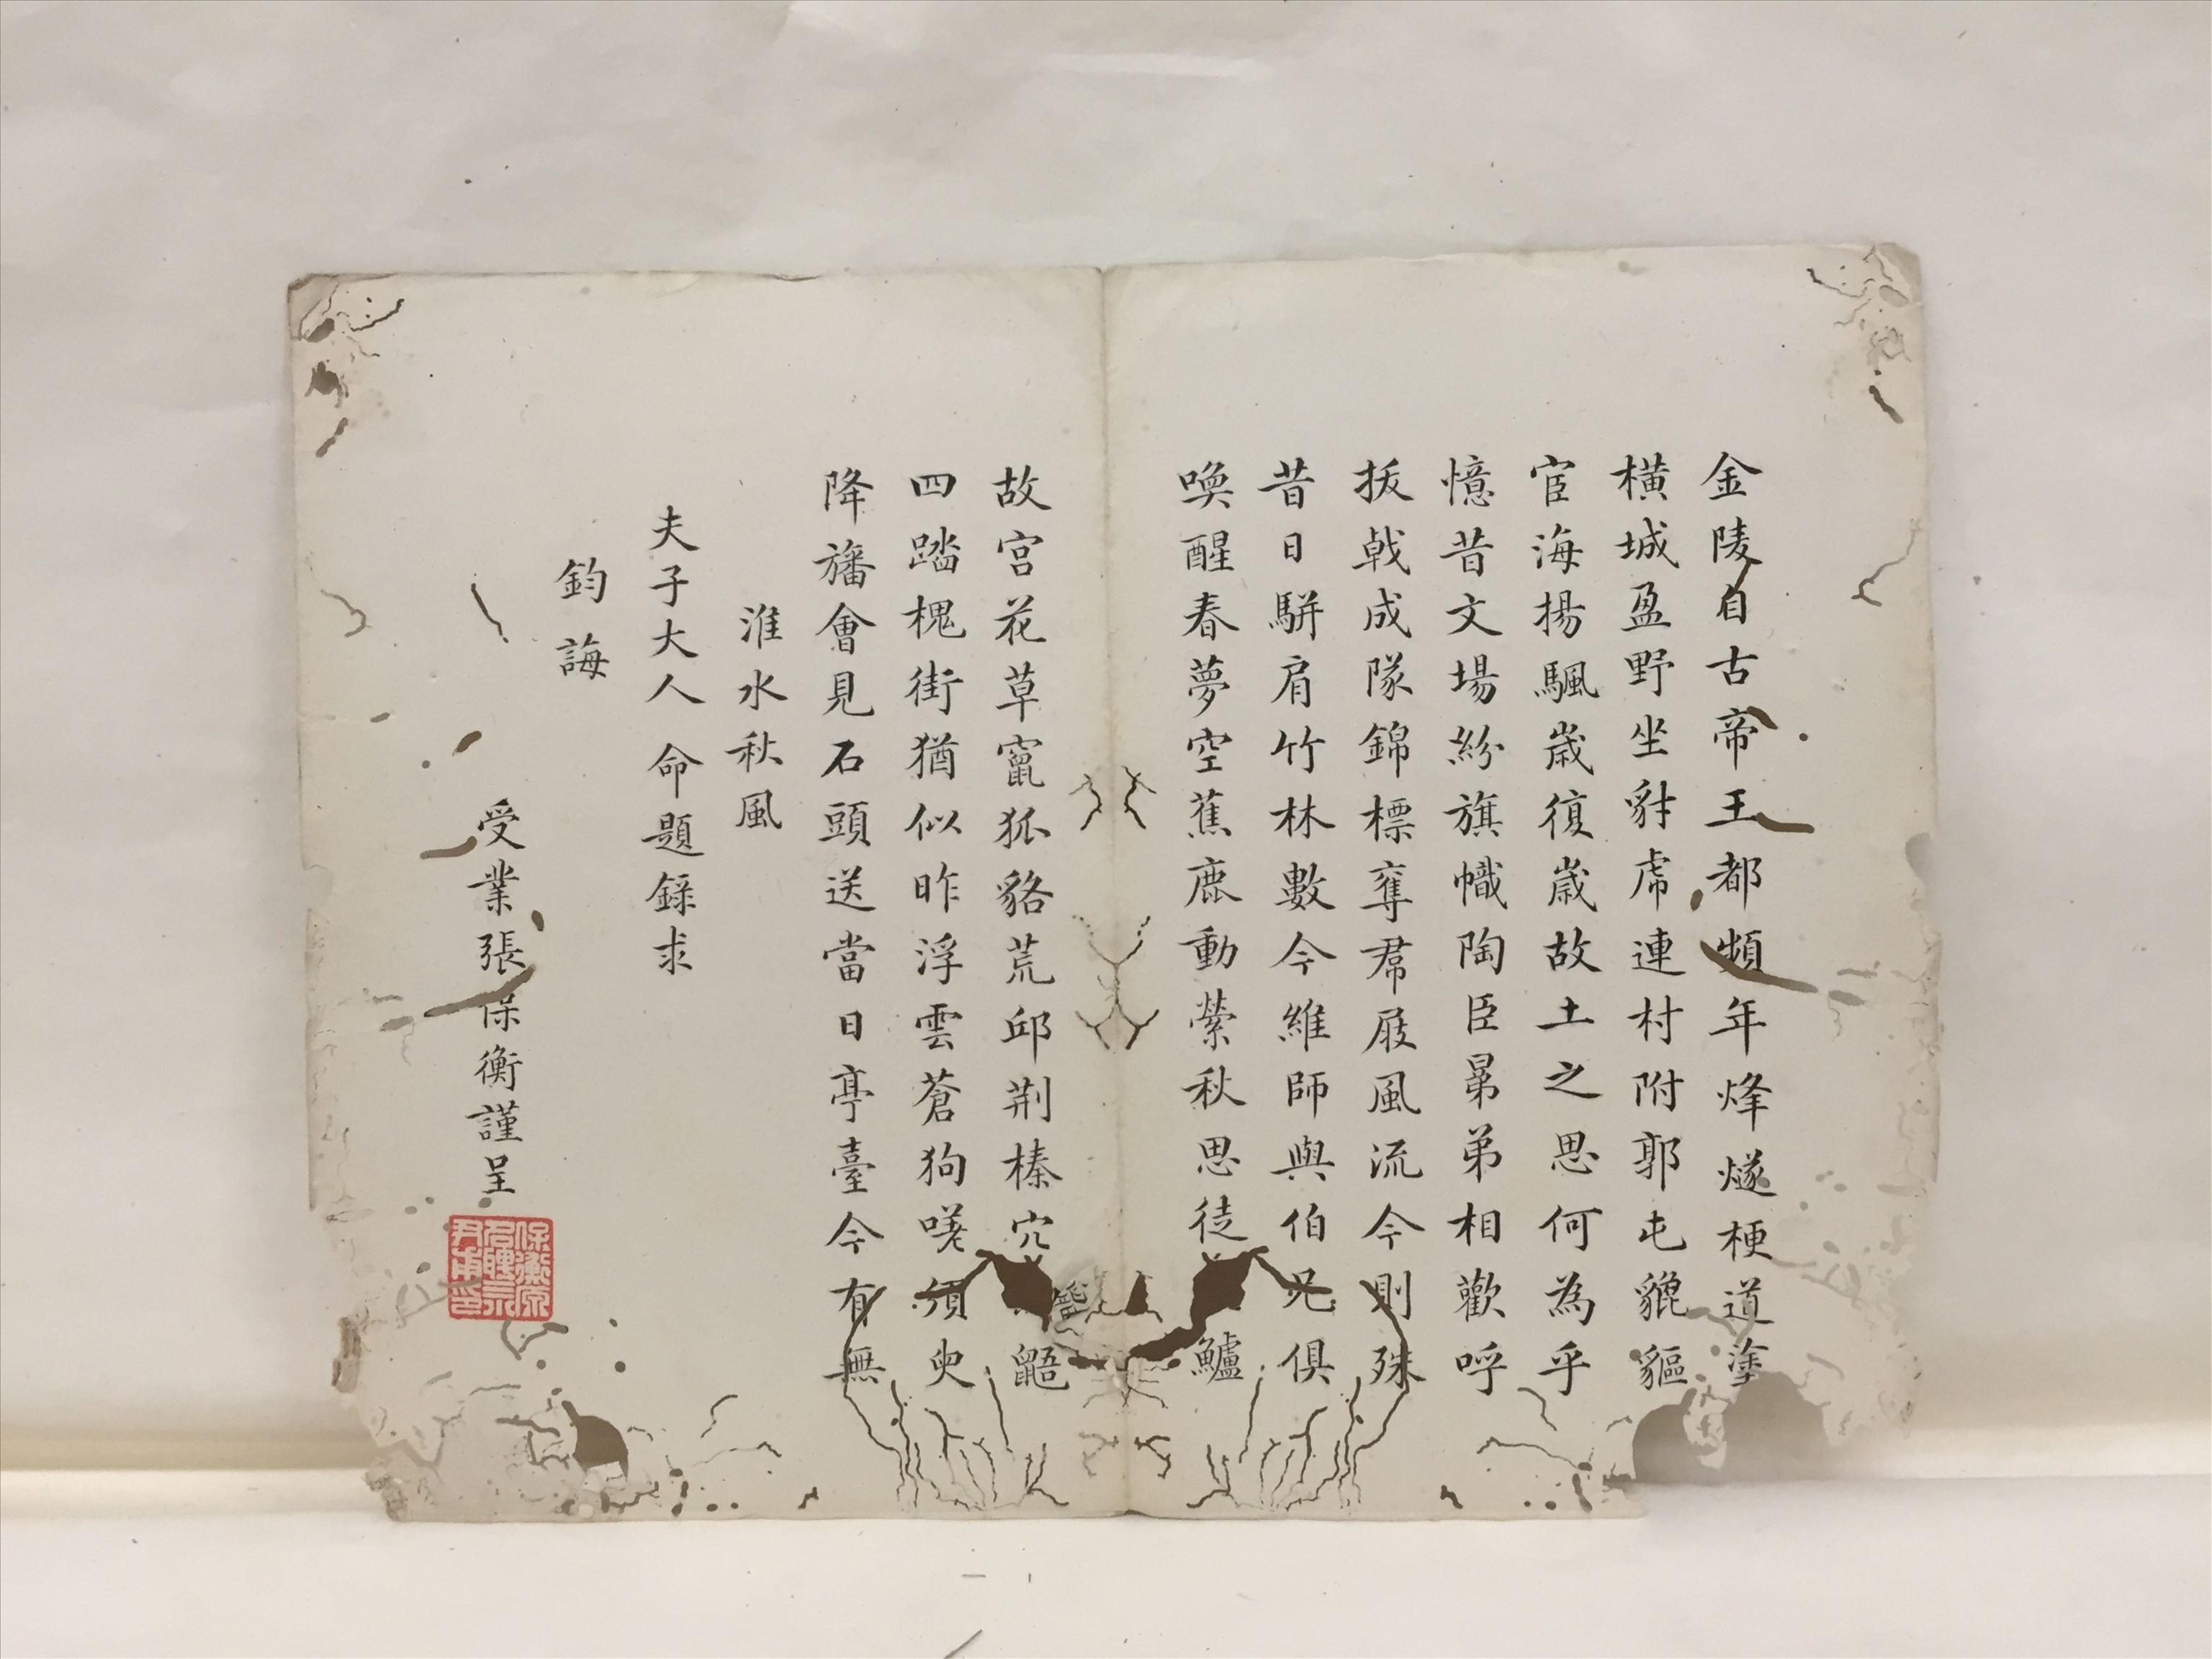 金陵自古帝王都頻年烽燧梗道塗
橫城盈野坐豺虎連村附郭屯貔貙
宦海揚颿歲復歲故土之思何為乎
憶昔文場紛旗幟陶臣㬎弟相歡呼
拔戟成隊錦標奪君屐風流今則殊
昔日駢肩竹林數今維師與伯兄俱
喚醒春夢空蕉鹿動縈秋思徒鱸
故宮花草竄狐貉荒邱荆榛穴鼯
四踏槐街猶似昨浮雲蒼狗嗟須臾
降旛會見石頭送當日亭臺今有無
淮水秋風
夫子大人命題錄求
鈞誨
受業張保衡謹呈